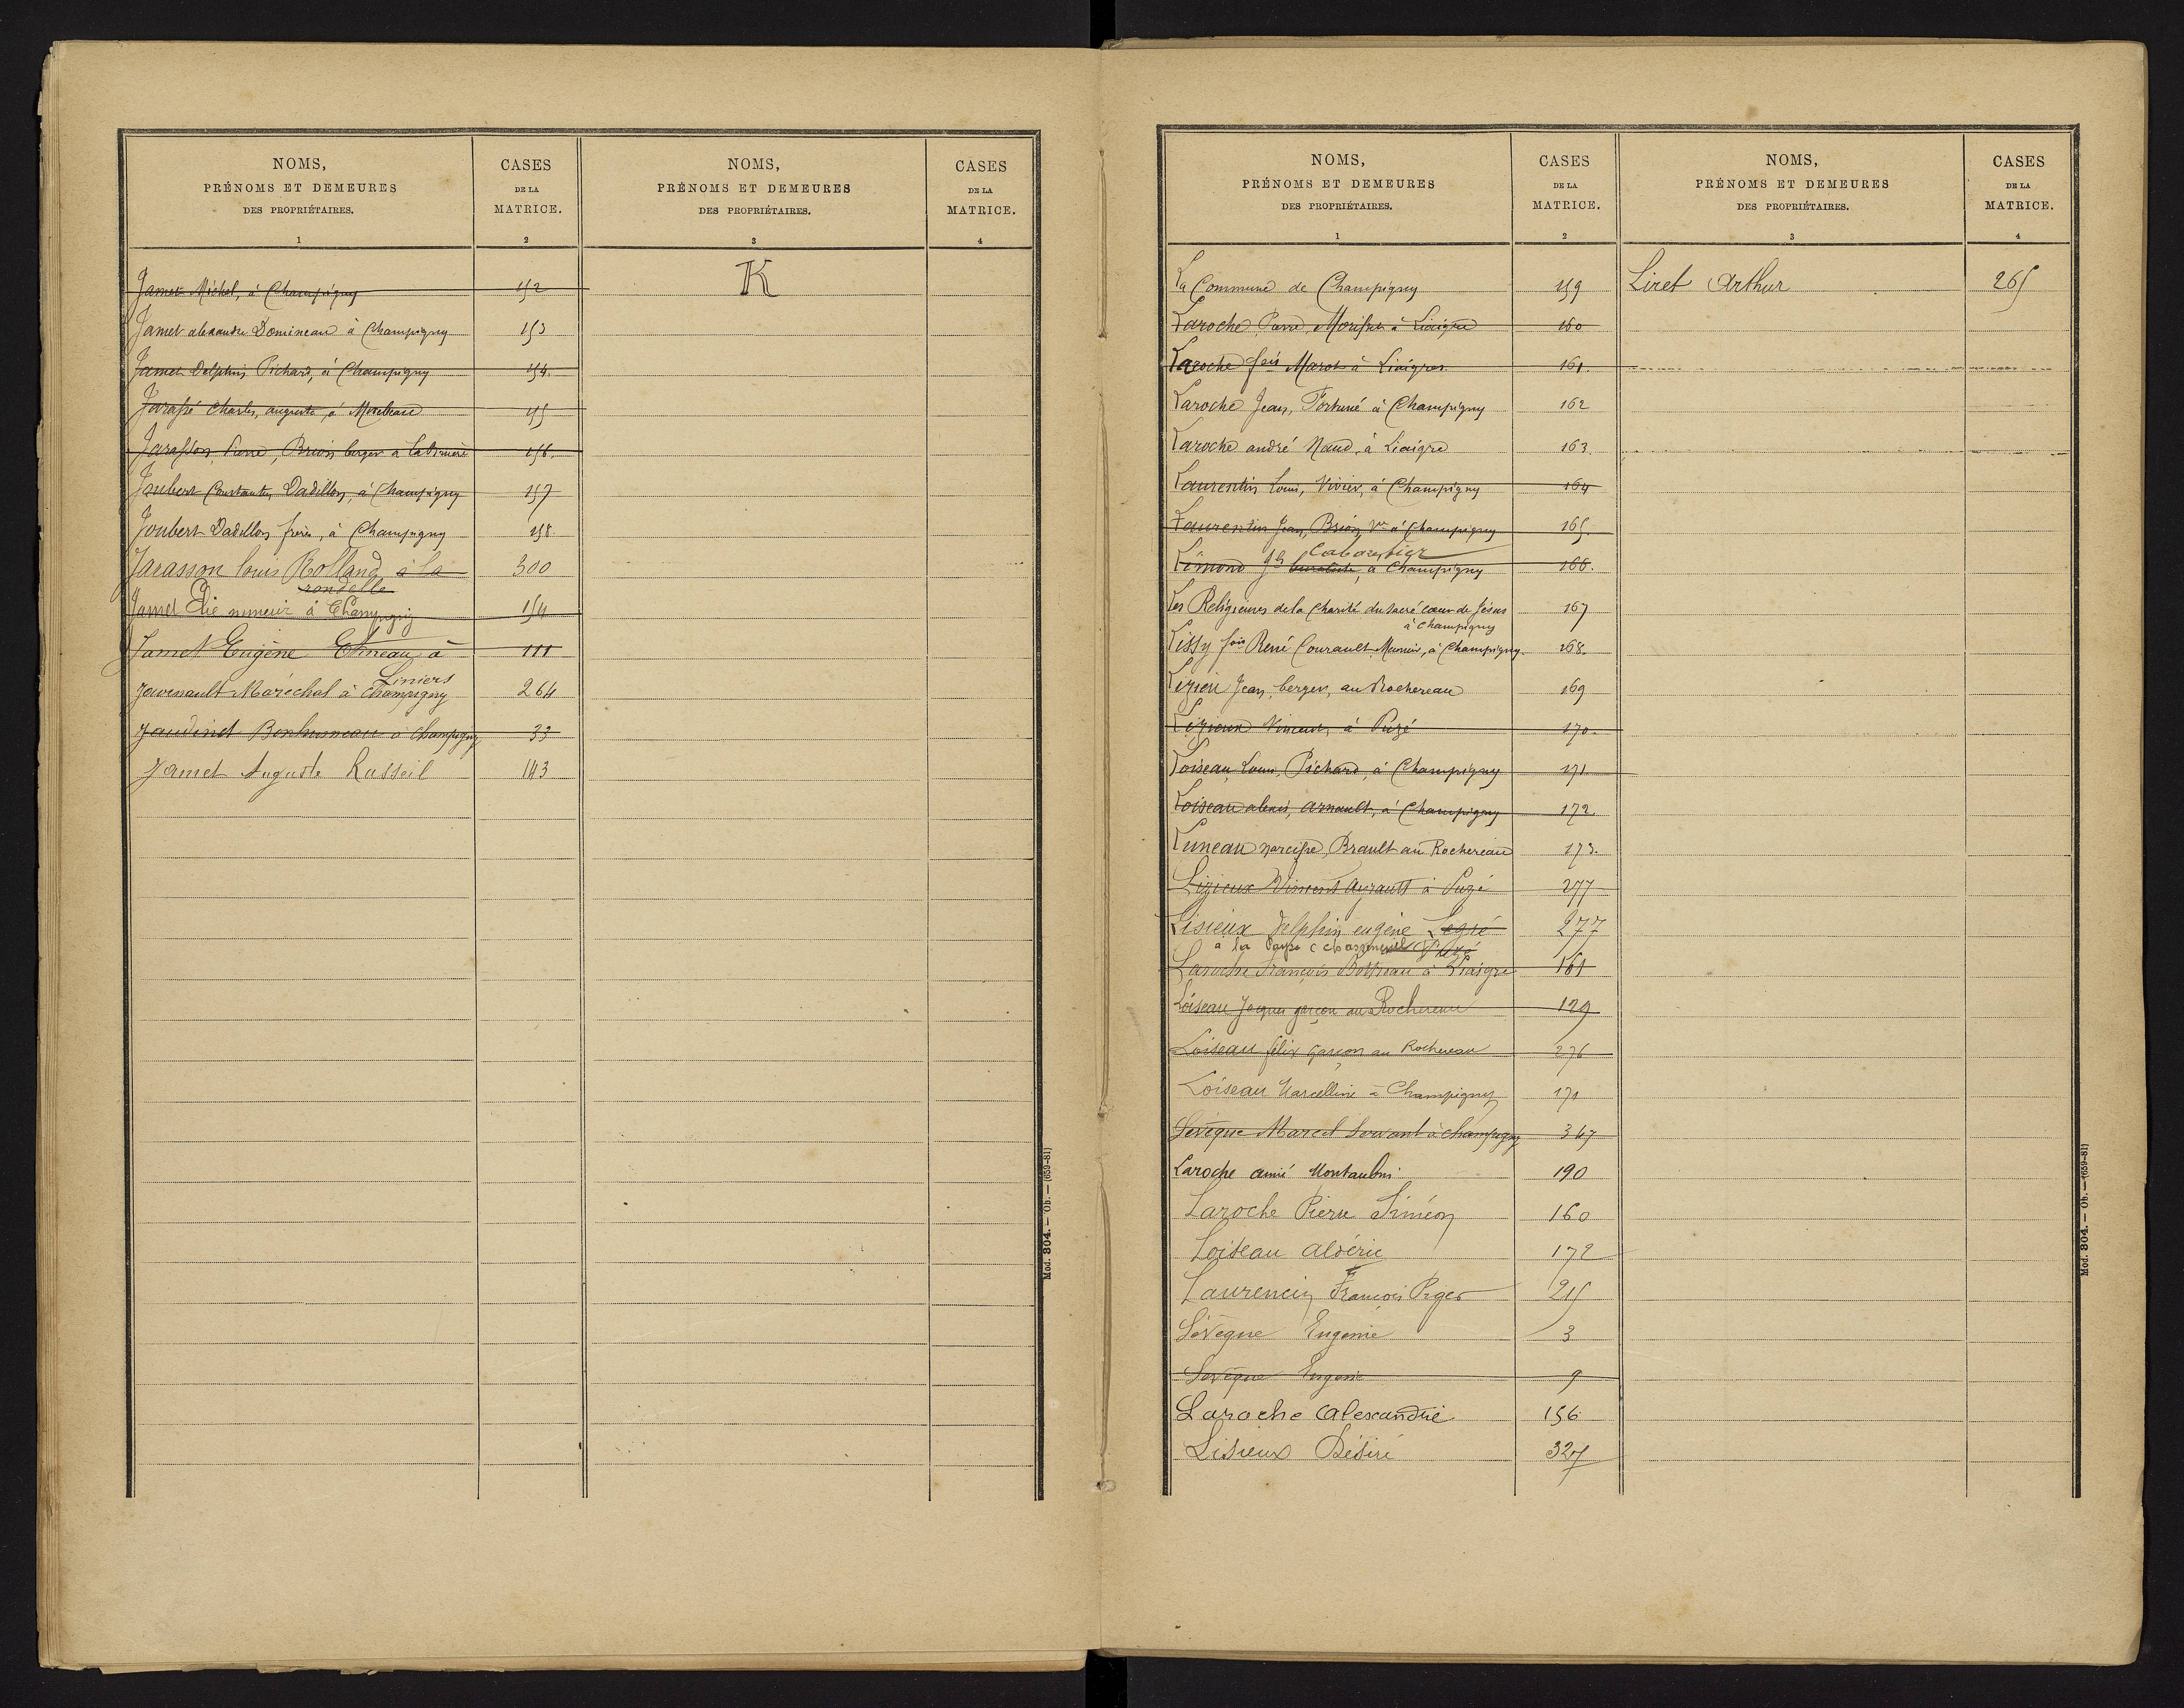 NOMS,
PRÉNOMS ET DEMEURES
DES PROPRIÉTAIRES.
1
CASES
DE LA
MATRICE.
2
NOMS,
PRÉNOMS ET DEMEURES
DES PROPRIÉTAIRES.
3
CASES
DE LA
MATRICE.
4
Jamet Michel, à Champigny 152
Jamet alexandre Domineau à Champigny 153
Jamet Delphin Pichard, à Champigny 154.
Jarassé Charles, auguste, à Mirebeau 155
Jarasson Pierre, Brion berger à 156.
Joubert Constantin, Dadillon, à Champigny 157
Joubert Dadillon frères, à Champigny 158
Jarasson louis Rolland à la 300
rondelle
Jamet Elie à Champigny 154
Jamet Eugène Etineau à 111
Liniers
Journault Maréchal à Champigny 264
Jaudinet Bonhumeau à Champigny 33
Jamet Auguste Russeil 143
K
Mod. 304. — Ob. — (659-81)
NOMS,
PRÉNOMS ET DEMEURES
DES PROPRIÉTAIRES.
1
CASES
DE LA
MATRICE.
2
NOMS,
PRÉNOMS ET DEMEURES
DES PROPRIÉTAIRES.
3
CASES
DE LA
MATRICE.
4
La Commune de Champigny 159
Laroche Pierre, Morisset à Liaigre 160
Laroche fois Marot à Liaigres 161.
Laroche Jean, Fortuné à Champigny 162
Laroche andré Naud, à Liaigre 163.
Laurentin Louis, Vivier, à Champigny 164
Laurentin Jean, Brion Vve à Champigny 165.
Cabaretier
Lémond à Champigny 166.
Les Religieuses de la Charité du Sacré cœur de Jésus 167
à Champigny
Lissy fois René Courault Meunier, à Champigny 168.
Lizieu Jean, berger, au Rochereau 169
Lizieux Vincent, à Puzé 170.
Loiseau Louis, Pichard, à Champigny 171.
Loiseau alexis, Arnault, à Champigny 172.
Luneau Narcisse, Brault au Rochereau 173.
Lizieux Vincent Ayrault à Puzé 277
Lisieux Delphin eugène Legié 277
à la Puzé
Laroche François Bottreau à Liaigre 161
Loiseau Jacques garçon au Rochereau 129
Loiseau félix garçon au Rochereau 276
Loiseau Marcelline à Champigny 171
Levêque Marcel Savant à Champigny 347
Laroche aimé Montaubin 190
Laroche Pierre Siméon 160
Loiseau Aldéric 172
Laurencin François Piger 215
Lévêque Eugénie 3
Levêque Eugénie 9
Laroche Alexandre 156
Lisieux Désiré 327
Liret Arthur 265
Mod. 304. — Ob. — (659-81)